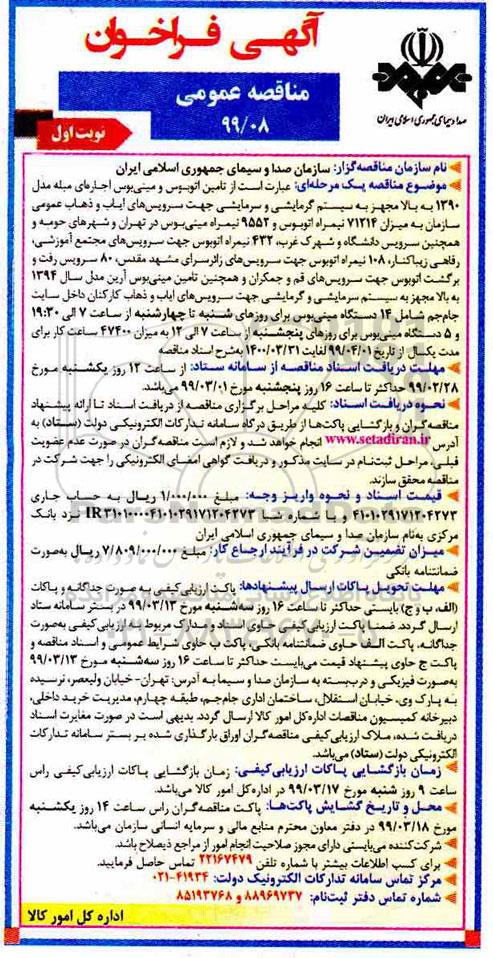 آگهی فراخوان
مناقصه عمومی
۹۹/۰۸
نوبت اول
صدا و سیمای جمهوری اسلامی ایران
نام سازمان مناقصه‌گزار: سازمان صدا و سیمای جمهوری اسلامی ایران
موضوع مناقصه یک مرحله‌ای: عبارت است از تامین اتوبوس و مینی‌بوس اجاره‌ای مبله مدل
۱۳۹۰ به بالا مجهز به سیستم گرمایشی و سرمایشی جهت سرویس‌های ایاب و ذهاب عمومی
سازمان به میزان ۷۱۲۱۴ نیمراه اتوبوس و ۹۵۵۲ نیمراه مینی‌بوس در تهران و شهرهای حومه و
همچنین سرویس دانشگاه و شهرک غرب، ۴۳۲ نیمراه اتوبوس جهت سرویس‌های مجتمع آموزشی،
رفاهی زیباکنار، ۱۰۸ نیمراه اتوبوس جهت سرویس‌های زائرسرای مشهد مقدس، ۸۰ سرویس رفت و
برگشت اتوبوس جهت سرویس‌های قم و جمکران و همچنین تامین مینی‌بوس آرین مدل سال ۱۳۹۴
به بالا مجهز به سیستم سرمایشی و گرمایشی جهت سرویس‌های ایاب و ذهاب کارکنان داخل سایت
جام‌جم شامل ۱۴ دستگاه مینی‌بوس برای روزهای شنبه تا چهارشنبه از ساعت ۷ الی ۱۹:۳۰
و ۵ دستگاه مینی‌بوس برای روزهای پنجشنبه از ساعت ۷ الی ۱۲ به میزان ۴۷۴۰۰ ساعت کار برای
مدت یکسال از تاریخ ۹۹/۰۴/۰۱ لغایت ۱۴۰۰/۰۳/۳۱ به‌شرح اسناد مناقصه
مهلت دریافت اسناد مناقصه از سامانه ستاد: از ساعت ۱۲ روز یکشنبه مورخ
۹۹/۰۲/۲۸ حداکثر تا ساعت ۱۶ روز پنجشنبه مورخ ۹۹/۰۳/۰۱ می‌باشد.
نحوه دریافت اسناد: کلیه مراحل برگزاری مناقصه از دریافت اسناد تا ارائه پیشنهاد
مناقصه‌گران و بازگشایی پاکت‌ها از طریق درگاه سامانه تدارکات الکترونیکی دولت (ستاد) به
آدرس www.setadiran.ir انجام خواهد شد و لازم است مناقصه‌گران در صورت عدم عضویت
قبلی، مراحل ثبت‌نام در سایت مذکور و دریافت گواهی امضای الکترونیکی را جهت شرکت در
مناقصه محقق سازند.
قیمت اسناد و نحوه واریز وجه: مبلغ ۱/۰۰۰/۰۰۰ ریال به حساب جاری
۴۱۰۱۰۲۹۱۷۱۲۰۴۲۷۳ و با شماره شبا IR ۳۱۰۱۰۰۰۰۴۱۰۱۰۲۹۱۷۱۲۰۴۲۷۳ نزد بانک
مرکزی به‌نام سازمان صدا و سیمای جمهوری اسلامی ایران
میزان تضمین شرکت در فرآیند ارجاع کار: مبلغ ۷/۸۰۹/۰۰۰/۰۰۰ ریال به‌صورت
ضمانتنامه بانکی
مهلت تحویل پاکات ارسال پیشنهادها: پاکت ارزیابی کیفی به صورت جداگانه و پاکات
(الف، ب و ج) بایستی حداکثر تا ساعت ۱۶ روز سه‌شنبه مورخ ۹۹/۰۳/۱۳ در بستر سامانه ستاد
ارسال گردد. ضمنا پاکت ارزیابی کیفی حاوی اسناد و مدارک مربوط به ارزیابی کیفی به‌صورت
جداگانه، پاکت الف حاوی ضمانتنامه بانکی، پاکت ب حاوی شرایط عمومی و اسناد مناقصه و
پاکت ج حاوی پیشنهاد قیمت می‌بایست حداکثر تا ساعت ۱۶ روز سه‌شنبه مورخ ۹۹/۰۳/۱۳
به‌صورت فیزیکی و دربسته به سازمان صدا و سیما به آدرس: تهران- خیابان ولیعصر، نرسیده
به پارک وی، خیابان استقلال، ساختمان اداری جام‌جم، طبقه چهارم، مدیریت خرید داخلی،
دبیرخانه کمیسیون مناقصات اداره‌کل امور کالا ارسال گردد. بدیهی است در صورت مغایرت اسناد
دریافت شده، ملاک ارزیابی کیفی مناقصه‌گران اوراق بارگذاری شده بر بستر سامانه تدارکات
الکترونیکی دولت (ستاد) می‌باشد.
زمان بازگشایی پاکات ارزیابی‌کیفی: زمان بازگشایی پاکات ارزیابی‌کیفی راس
ساعت ۹ روز شنبه مورخ ۹۹/۰۳/۱۷ در اداره‌کل امور کالا می‌باشد.
محل و تاریخ گشایش پاکت‌ها: پاکت مناقصه‌گران راس ساعت ۱۴ روز یکشنبه
مورخ ۹۹/۰۳/۱۸ در دفتر معاون محترم منابع مالی و سرمایه انسانی سازمان می‌باشد.
شرکت‌کننده می‌بایستی دارای مجوز صلاحیت انجام امور از مراجع ذیصلاح باشد.
برای کسب اطلاعات بیشتر با شماره تلفن ۲۲۱۶۷۴۷۹ تماس حاصل فرمایید.
مرکز تماس سامانه تدارکات الکترونیک دولت: ۴۱۹۳۴-۰۲۱
شماره تماس دفتر ثبت‌نام: ۸۸۹۶۹۷۳۷ و ۸۵۱۹۳۷۶۸
اداره کل امور کالا